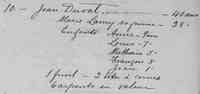 10 - Jean Duval - 40 ans
Marie Lamy sa femme - 28 -
Enfants Anne - 9 ans
Louis - 7 -
Mathurin 5 -
François 3
Jean 1
1 fusil - 2 bêtes à cornes
7 arpents en valeur